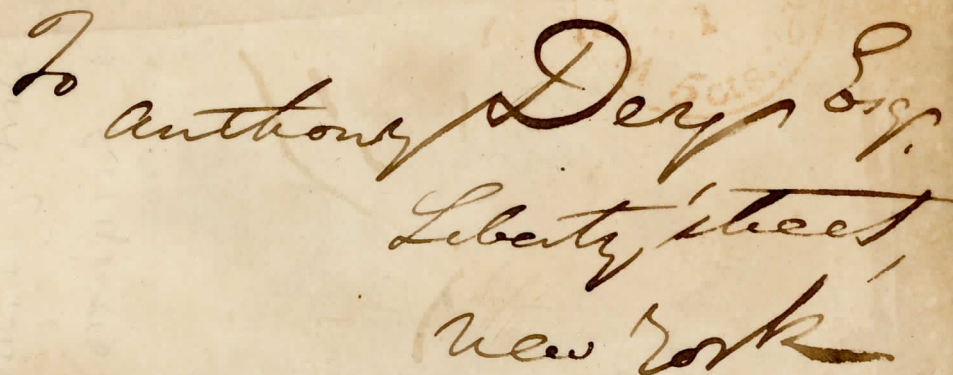 To
Anthony Dey, Esq.
Liberty street,
New York